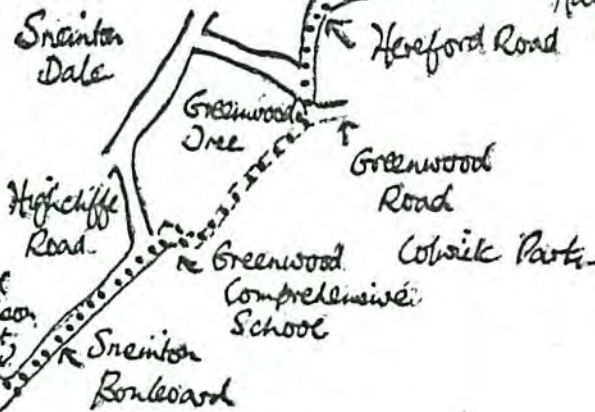 Sneinton
Dale
Hereford Road
Greenwood
Dree
Greenwood
Road
Highcliffe
Road
Colwick Park
Greenwood
Comprehensive
School
Sneinton
Boulevard